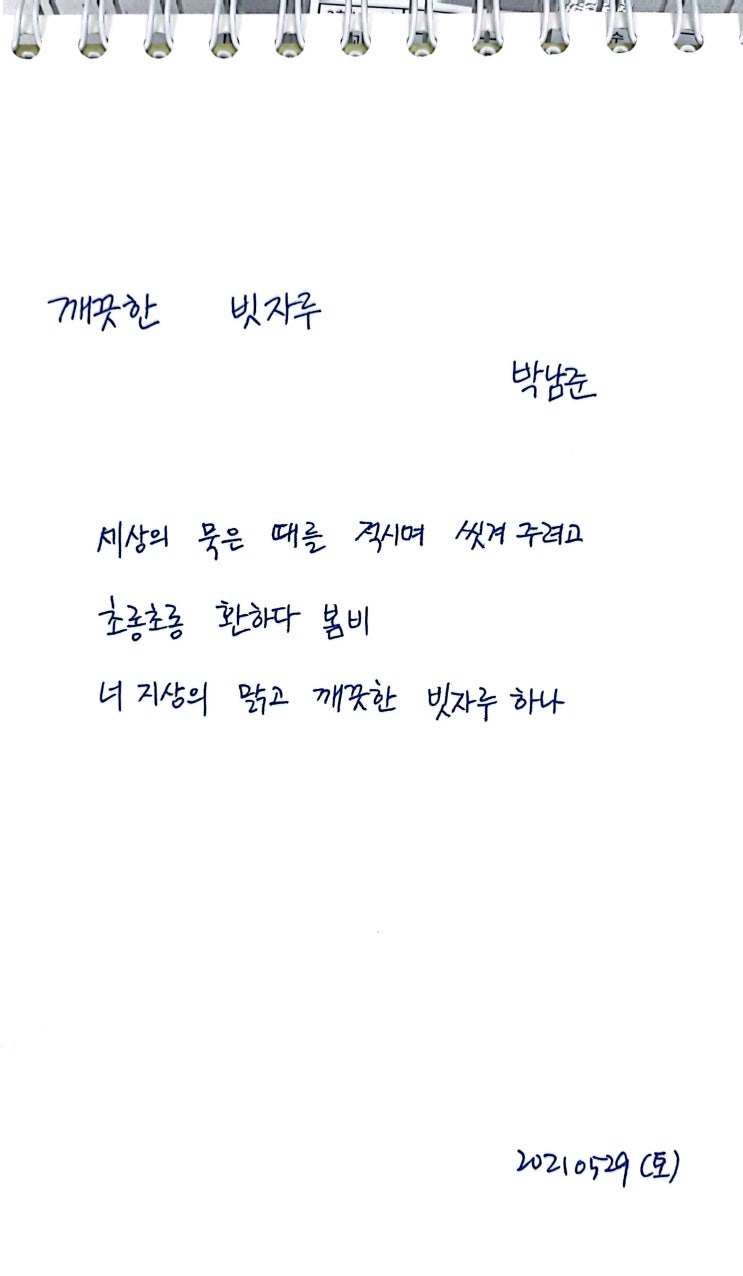 깨끗한 빗자루
박남준
세상의 묵은 때를 적시며 씻겨 주려고
초롱초롱 환하다 봄비
너 지상의 맑고 깨끗한 빗자루 하나
20210529 (토)